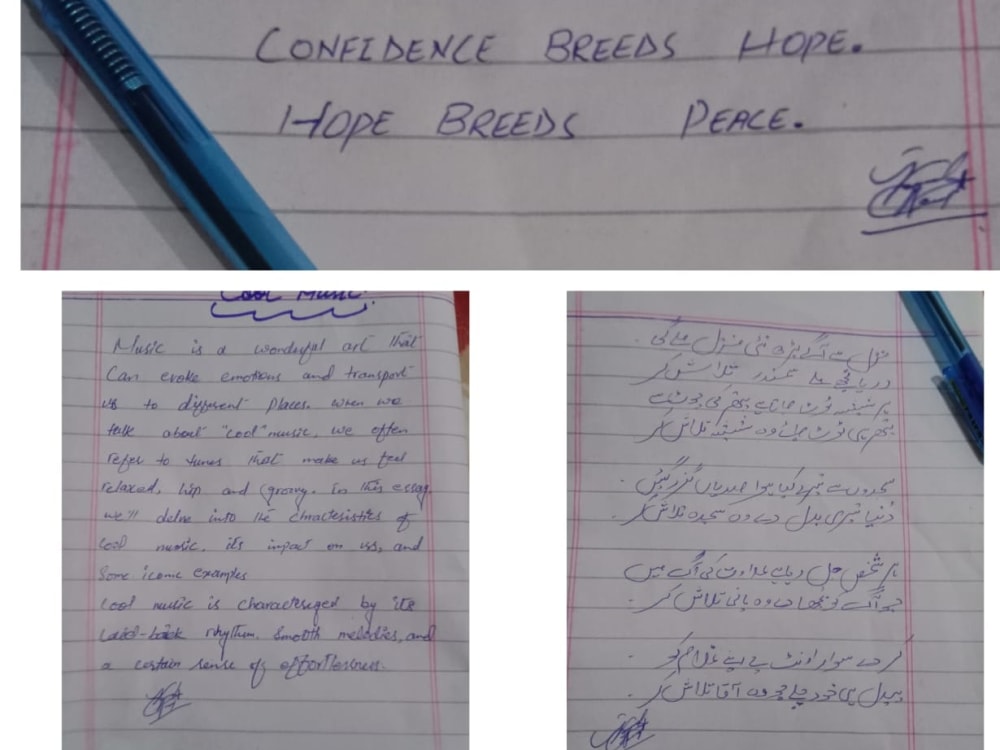 CONFIDENCE BREEDS HOPE.
HOPE BREEDS PEACE.
Cool Music.
Music is a wonderful art that
Can evoke emotions and transport
us to different places. When we
talk about "cool" music, we often
refer to tunes that make us feel
relaxed, hip and groovy. In this essay,
we'll delve into the chracteristics of
cool music, its impact on us, and
Some iconic examples
Cool music is characterized by its
Laid-back rhythm. Smooth melodies, and
a certain sense of effortlessness.
منزل سے آگے بڑھ نئی منزل ملے گی.
دریا سمندر تلاش کر
ہر شیشہ ٹوٹ جاتا ہے پتھر کی چوٹ سے
پتھر ہی ٹوٹ جائے وہ شیشہ تلاش کر
سجدوں سے تیرے کیا ہوا صدیاں گزر گئیں.
دُنیا تیری بدل دے وہ سجدہ تلاش کر.
ہر شخص جل رہا ہے عداوت کی آگ میں
جو آگ کو بجھا دے وہ پانی تلاش کر.
کر دے سوار اونٹ پہ اپنے غلام کو.
پیدل ہی خود چلے جو وہ آقا تلاش کر